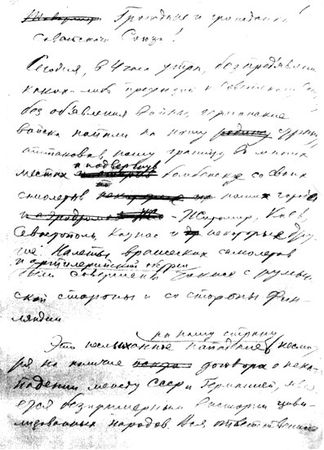 Граждане и гражданки
Советского Союза!
Сегодня, в 4 часа утра, без предъявления
каких-либо претензий к Советскому Союзу,
без объявления войны, германские
войска напали на нашу страну,
атаковав нашу границу во многих
местах и подвергнув бомбежке со своих
самолетов наши города
- Житомир, Киев,
Севастополь, Каунас и некоторые дру-
гие. Налеты вражеских самолетов
и артиллерийский обстрел
были совершены также с румын-
ской стороны и со стороны Фин-
ляндии.
на нашу страну
Это неслыханное нападение, несмот-
ря на наличие договора о нена-
падении между СССР и Германией, явля-
ется беспримерным в истории циви-
лизованных народов. Вся ответственность